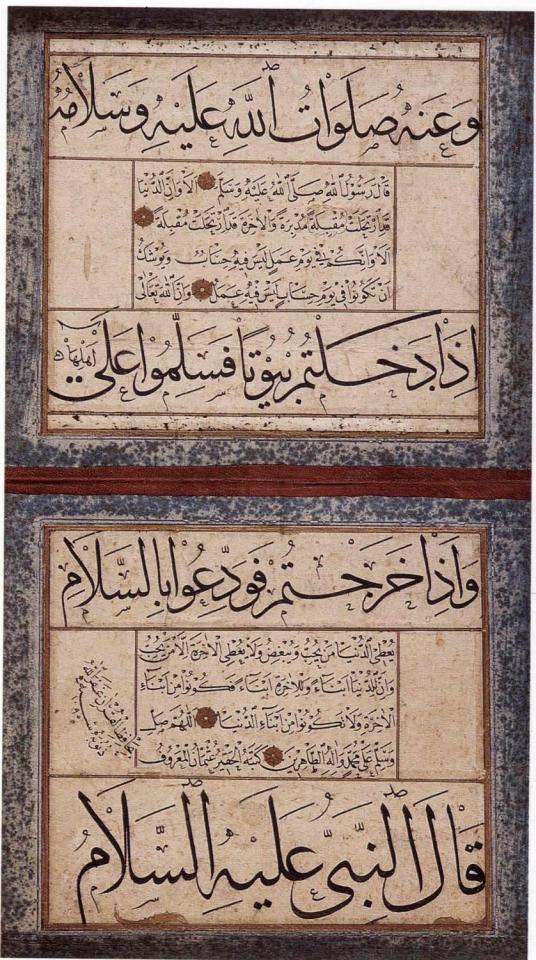 وَعَنهُ صَلَوَاتُ اللهِ عَلَيهِ وَسَلَامُهُ
قَالَ رَسُولُ اللهِ صَلَّى اللهُ عَلَيْهِ وَسَلَّمَ اَلَا وَاِنَّ الدُّنْيَا
قَدِ ارْتَحَلَتْ مُقْبِلَةً مُدْبِرَةً وَالْاٰخِرَةَ قَدِ ارْتَحَلَتْ مُقْبِلَةً
اَلَا وَاِنَّكُمْ فِي يَوْمِ عَمَلٍ لَيْسَ فِيهِ حِسَابٌ وَيُوشَكُ
اَنْ تَكُونُوا فِي يَوْمِ حِسَابٍ لَيْسَ فِيهِ عَمَلٌ وَاِنَّ اللهَ تَعَالٰى
اِذَا دَخَلْتُمْ بُيُوتًا فَسَلِّمُوا عَلٰى اَهْلِهَا
وَاِذَا خَرَجْتُمْ فَوَدِّعُوا بِالسَّلَامِ
يُعْطِي الدُّنْيَا مَنْ يُحِبُّ وَيُبْغِضُ وَلَا يُعْطِي الْاٰخِرَةَ اِلَّا مَنْ يُحِبُّ
وَاِنَّ لِلدُّنْيَا اَبْنَاءً وَلِلْاٰخِرَةِ اَبْنَاءً فَكُونُوا مِنْ اَبْنَاءِ
الْاٰخِرَةِ وَلَا تَكُونُوا مِنْ اَبْنَاءِ الدُّنْيَا اَللّٰهُمَّ صَلِّ
وَسَلِّمْ عَلٰى مُحَمَّدٍ وَاٰلِهِ الطَّاهِرِينَ كَتَبَهُ الْحَقِيرُ عُثْمَانُ الْمَعْرُوف
قَالَ النَّبِيُّ عَلَيْهِ السَّلَامُ